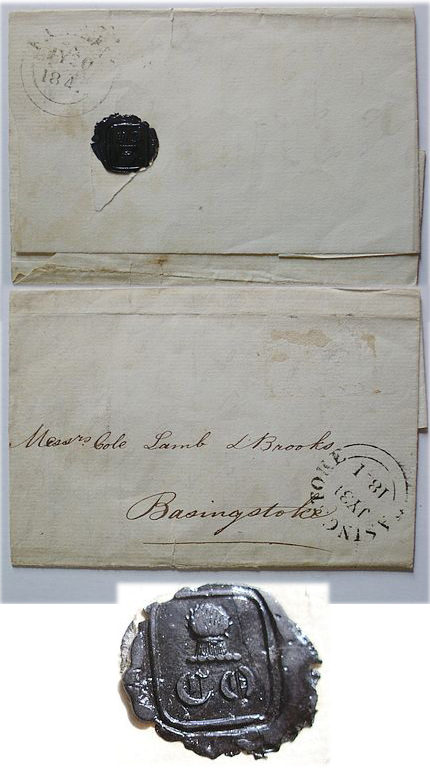 184
Messrs Cole Lamb & Brooks
Basingstoke
BASINGSTOKE
JY31
18-1
CO